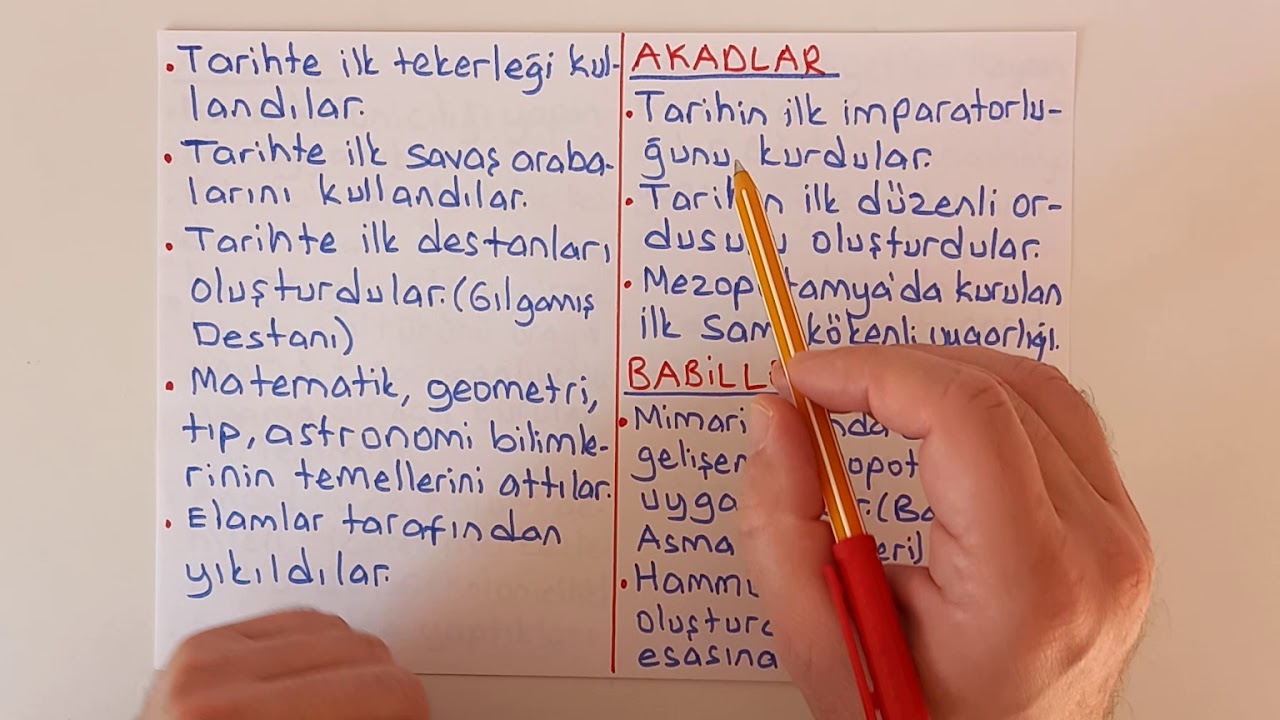 • Tarihte ilk tekerleği kul-
landılar.
• Tarihte ilk savaş araba-
larını kullandılar.
• Tarihte ilk destanları
oluşturdular. (Gılgamış
Destanı)
• Matematik, geometri,
tıp, astronomi bilimle-
rinin temellerini attılar.
• Elamlar tarafından
yıkıldılar.
AKADLAR
• Tarihin ilk imparatorlu-
ğunu kurdular.
• Tarihin ilk düzenli or-
dusunu oluşturdular.
• Mezopotamya'da kurulan
ilk Sami kökenli uygarlığı.
BABİLL
• Mimari
gelişen
Asma
•
esasına